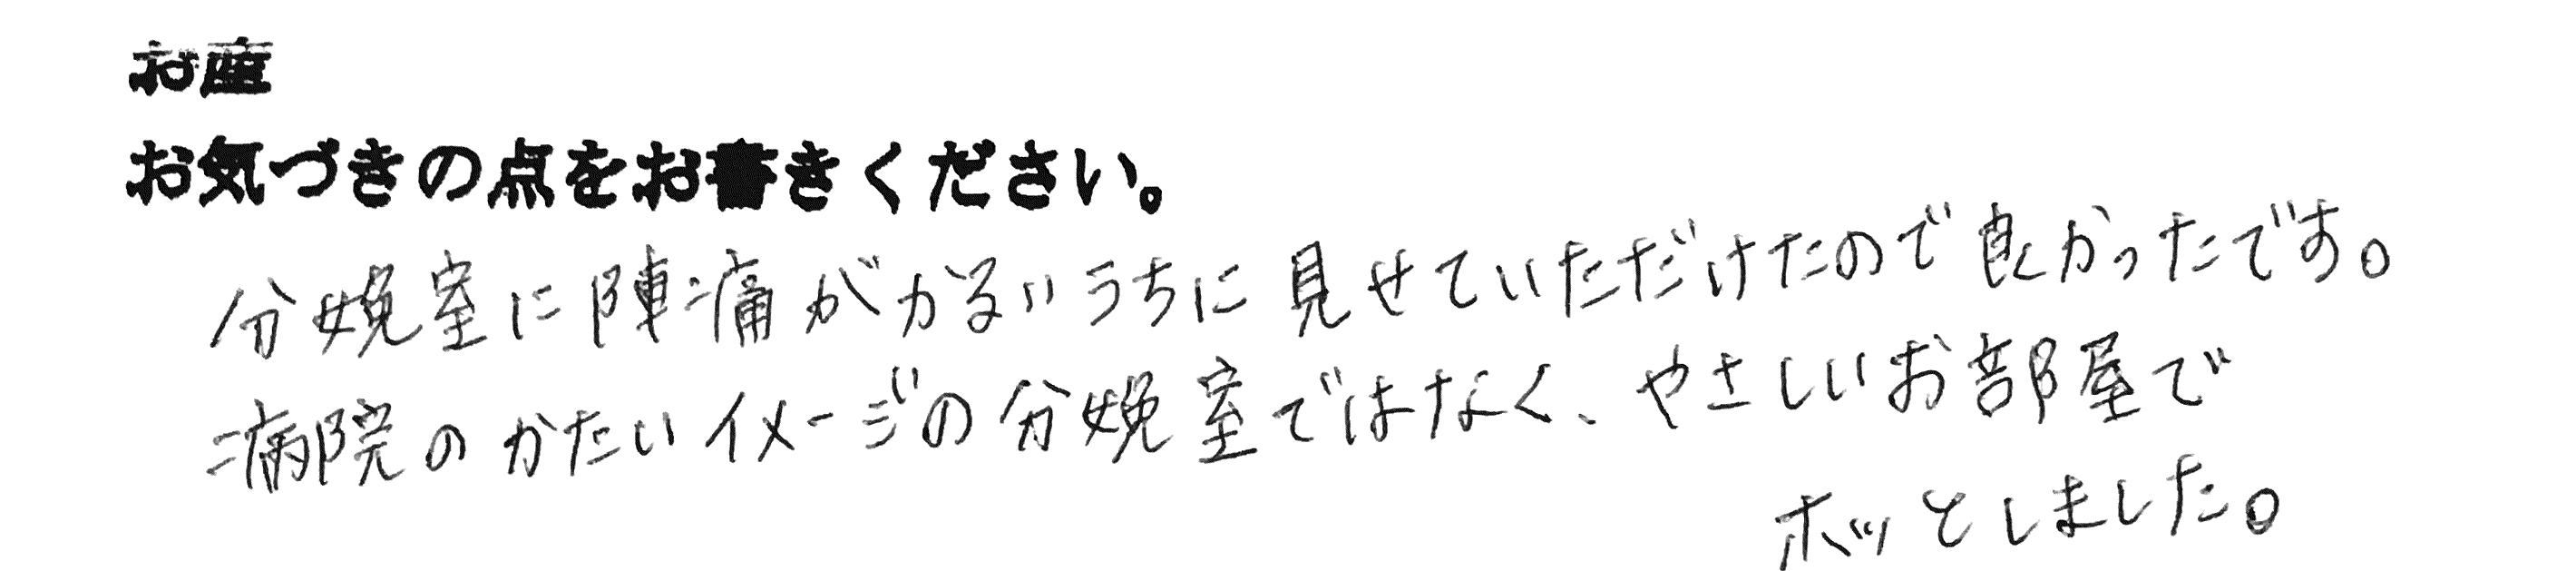 お産
お気づきの点をお書きください。
分娩室に陣痛がかるいうちに見せていただけたので良かったです。
病院のかたいイメージの分娩室ではなく、やさしいお部屋で
ホッとしました。